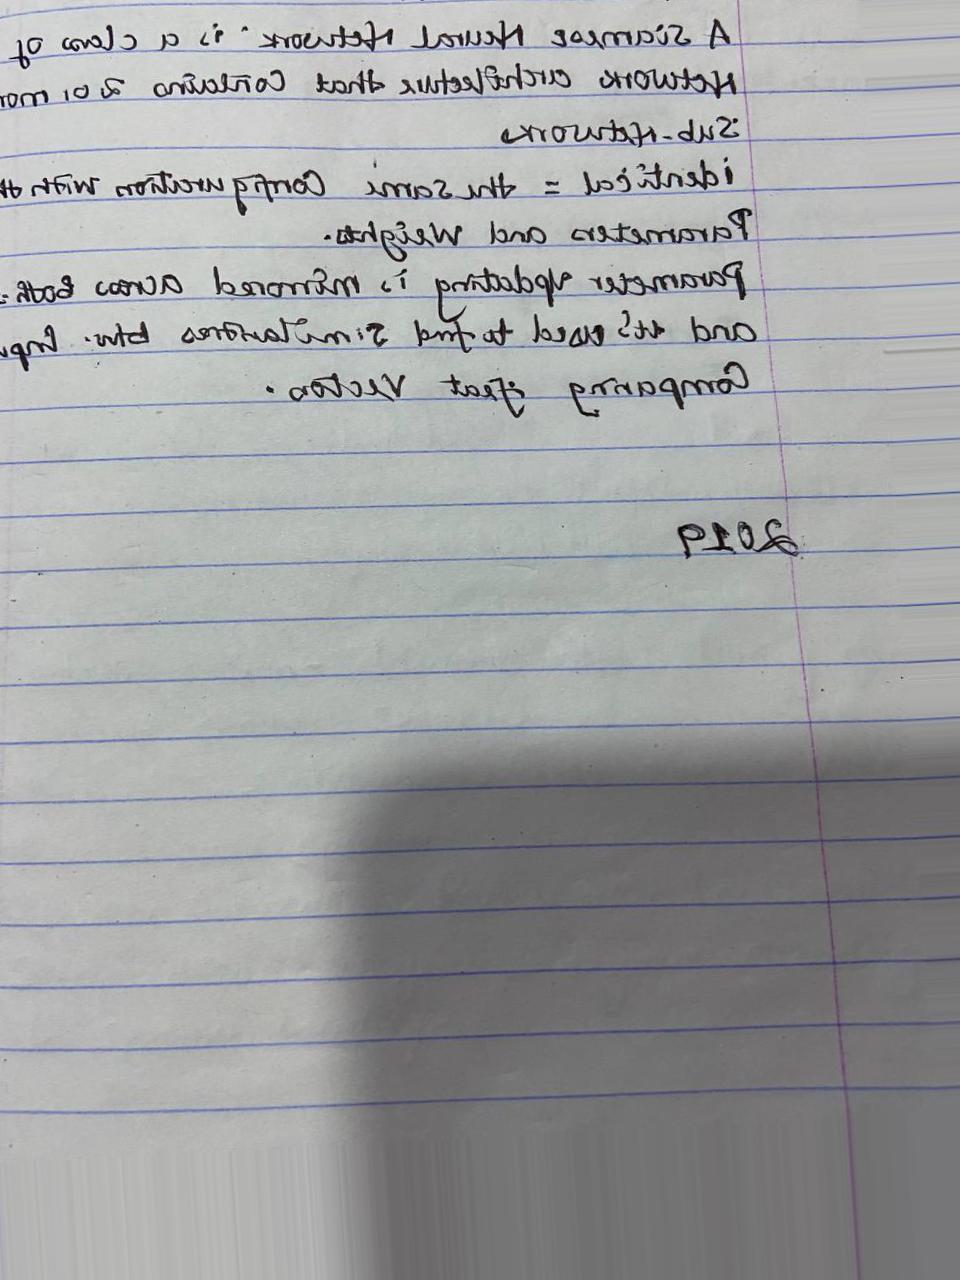 A Siamese Neural Network. is a class of
Network architecture that Contains 2 or mor
Sub-Networks
identical = the Same Configuration with
Parameters and Weights.
Parameter Updating is mirrored across both
and it's used to find Similarities btw. Inp
Comparing feat Vector.
2019